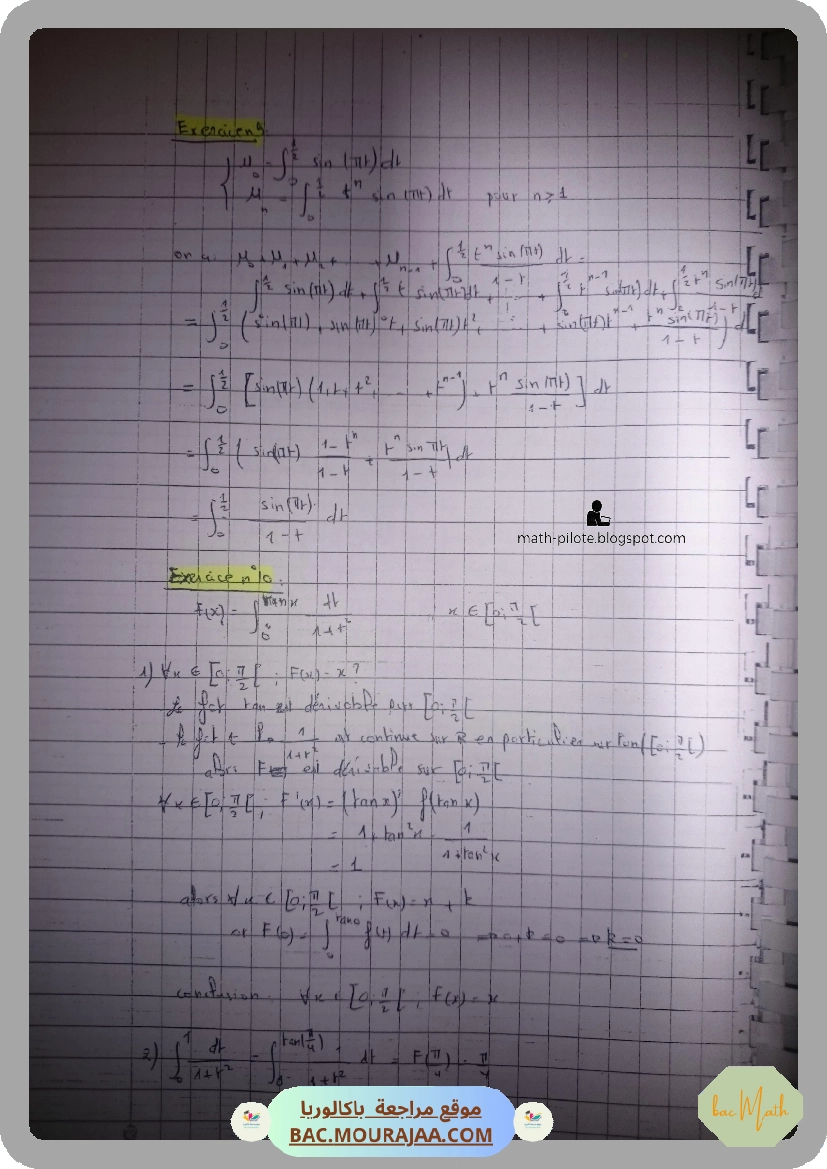 Exercice n°9
{ μ₀ = ∫₀^{1/2} sin(πt) dt
μₙ = ∫₀^{1/2} tⁿ sin(πt) dt pour n ≥ 1
on a : μ₀ + μ₁ + μ₂ + ... + μₙ₋₁ + ∫₀^{1/2} tⁿ sin(πt)/(1-t) dt =
∫₀^{1/2} sin(πt) dt + ∫₀^{1/2} t sin(πt) dt + ... + ∫₀^{1/2} tⁿ⁻¹ sin(πt) dt + ∫₀^{1/2} tⁿ sin(πt)/(1-t) dt
= ∫₀^{1/2} ( sin(πt) + sin(πt) t + sin(πt) t² + ... + sin(πt) tⁿ⁻¹ + tⁿ sin(πt)/(1-t) ) dt
= ∫₀^{1/2} [ sin(πt) (1 + t + t² + ... + tⁿ⁻¹) + tⁿ sin(πt)/(1-t) ] dt
= ∫₀^{1/2} ( sin(πt) (1-tⁿ)/(1-t) + tⁿ sin πt/(1-t) ) dt
= ∫₀^{1/2} sin(πt)/(1-t) dt
math-pilote.blogspot.com
Exercice n°10 :
F(x) = ∫₀^{tan x} dt/(1+t²) x ∈ [0; π/2[
1) ∀x ∈ [0; π/2[ ; F(x) = x ?
fct tan est dérivable sur [0; π/2[
fct t 1/(1+t²) est continue sur ℝ en particulier sur tan([0; π/2[)
alors F est dérivable sur [0; π/2[
∀x ∈ [0; π/2[ ; F'(x) = (tan x)' f(tan x)
= 1 + tan²x · 1/(1+tan²x)
= 1
alors ∀x ∈ [0; π/2[ ; F(x) = x + k
or F(0) = ∫₀^{tan 0} f(t) dt = 0 ⇒ 0 + k = 0 ⇒ k = 0
conclusion ∀x ∈ [0; π/2[ ; F(x) = x
2) ∫₀¹ dt/(1+t²) = ∫₀^{tan(π/4)} 1/(1+t²) dt = F(π/4) = π/4
موقع مراجعة باكالوريا
BAC.MOURAJAA.COM
bac Math